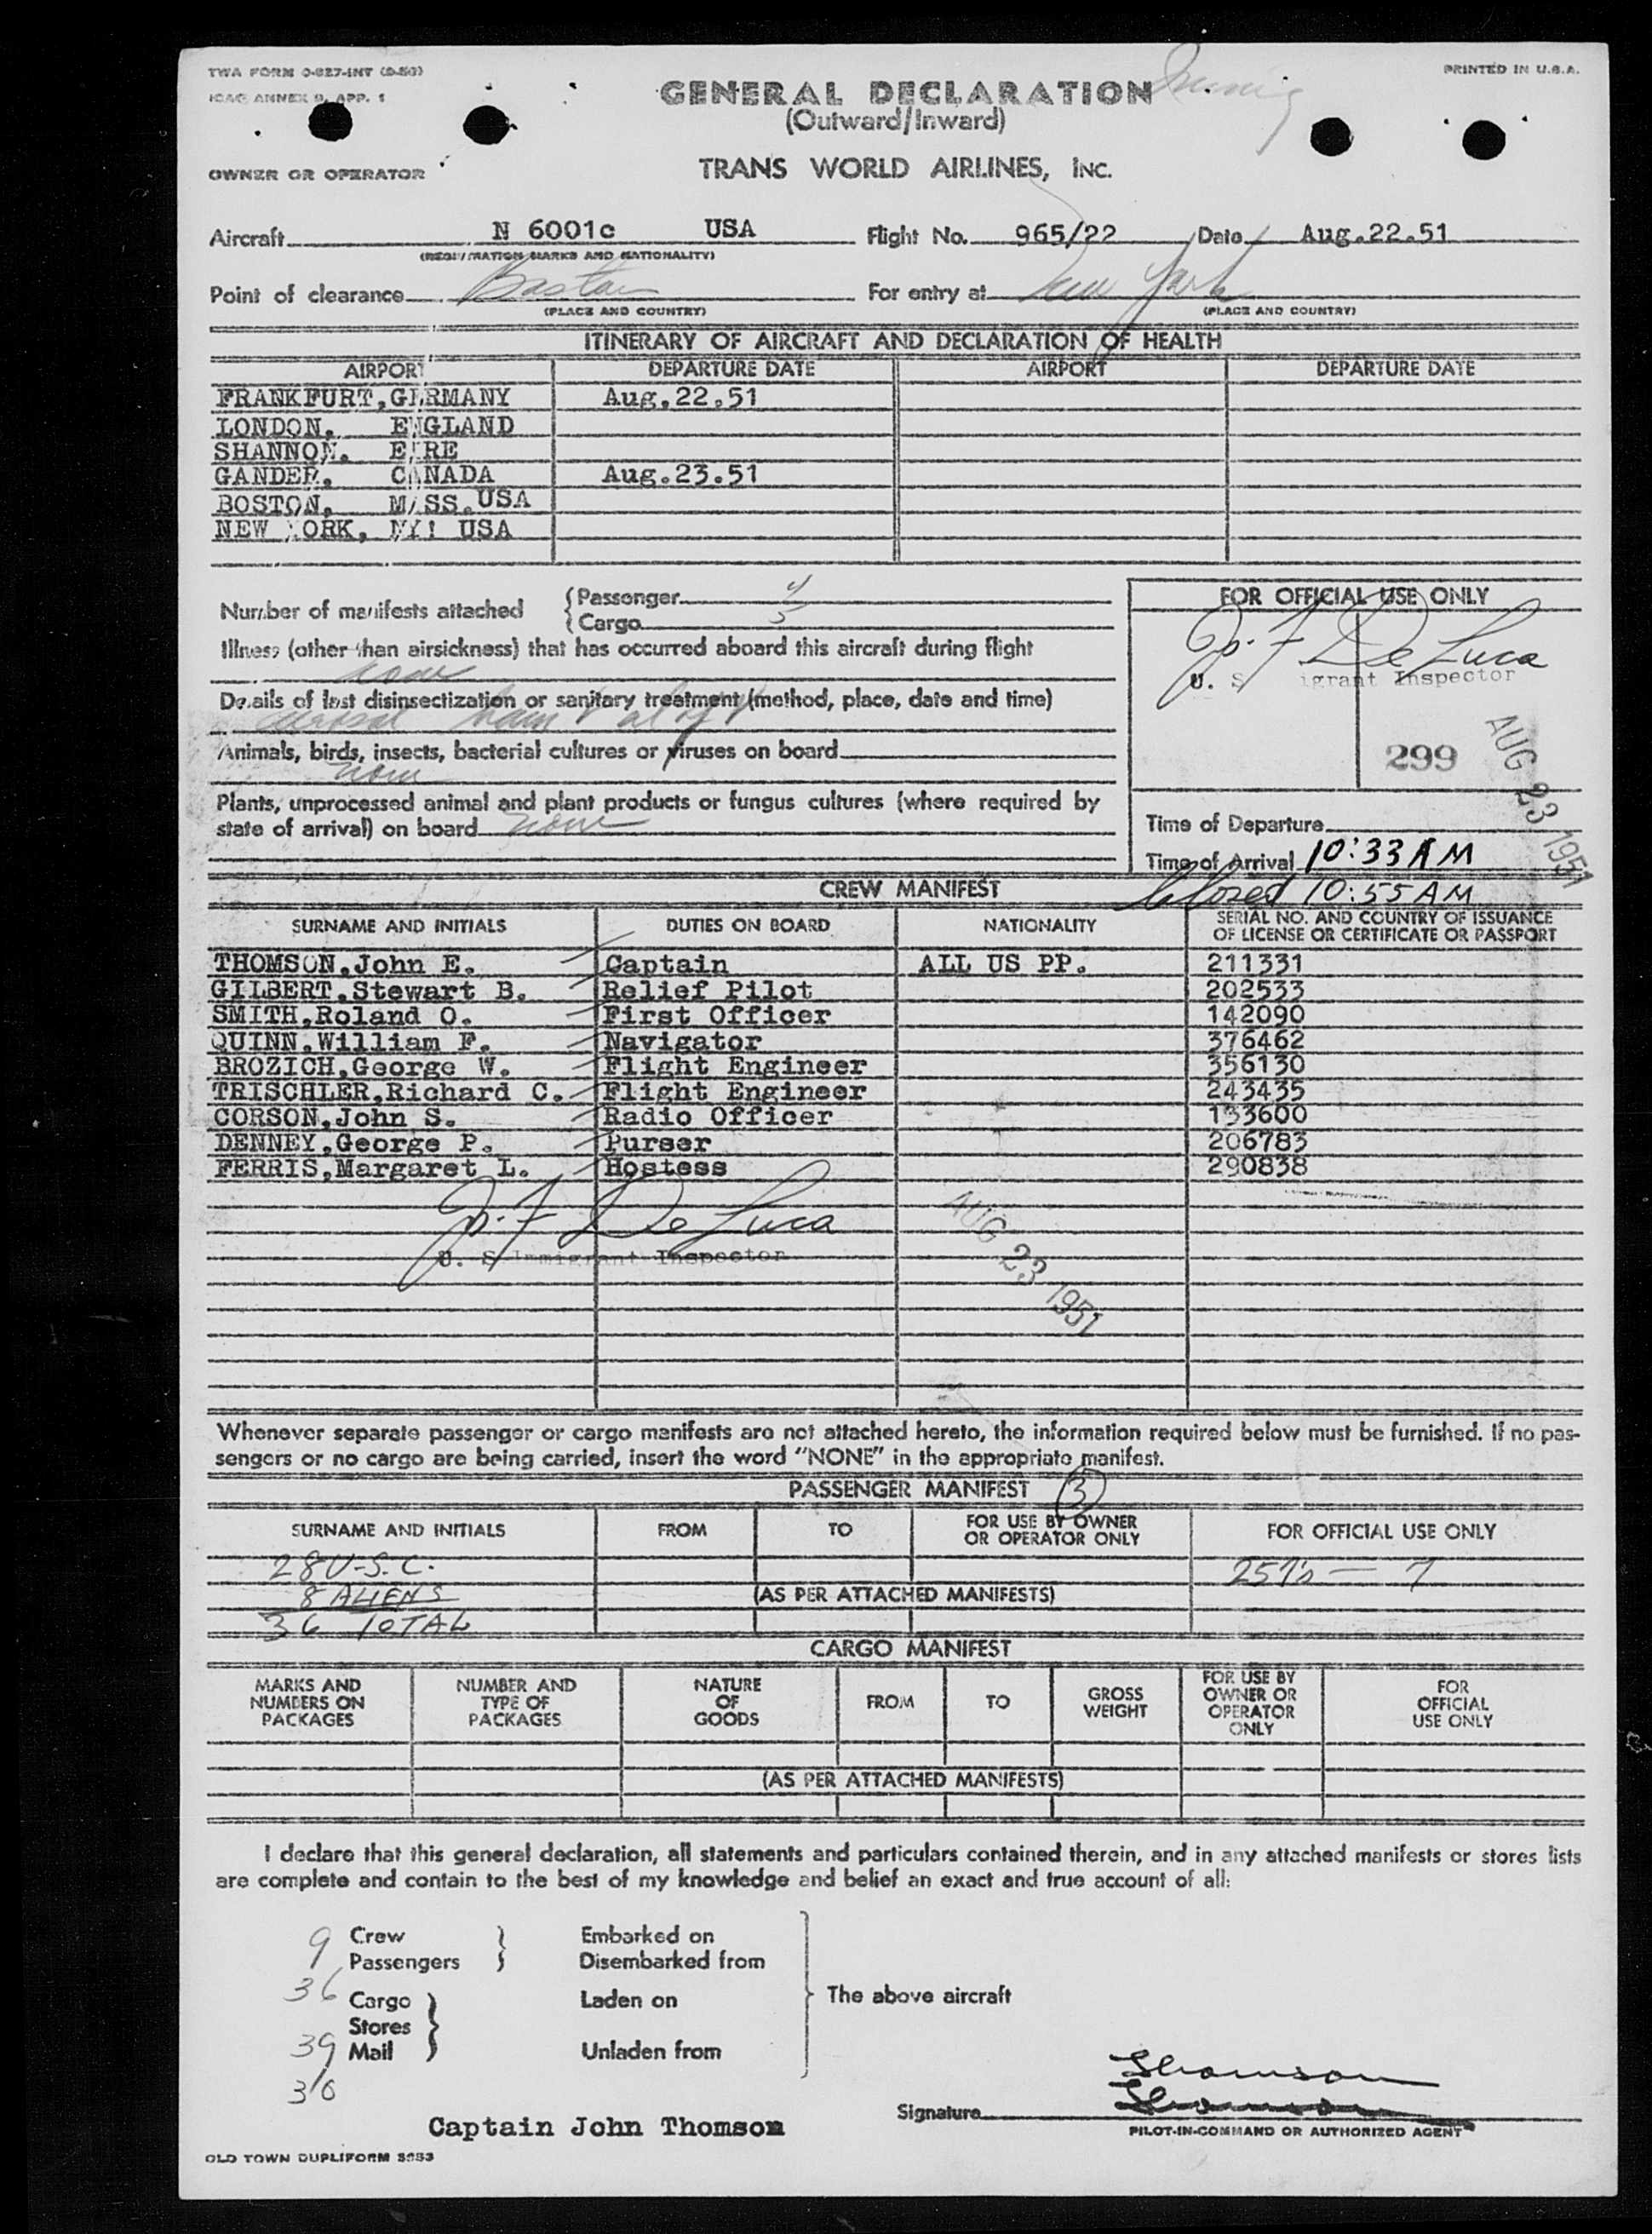 TWA FORM O-827-INT (5-50)
PRINTED IN U.S.A.
ICAO ANNEX 9, APP. 1
GENERAL DECLARATION
(Outward/Inward)
OWNER OR OPERATOR
TRANS WORLD AIRLINES, INC.
Aircraft N 6001c USA Flight No. 965/22 Date Aug.22.51
(REGISTRATION MARKS AND NATIONALITY)
Point of clearance Boston For entry at New York
(PLACE AND COUNTRY) (PLACE AND COUNTRY)
ITINERARY OF AIRCRAFT AND DECLARATION OF HEALTH
AIRPORT DEPARTURE DATE AIRPORT DEPARTURE DATE
FRANKFURT,GERMANY Aug.22.51
LONDON, ENGLAND
SHANNON. EIRE
GANDER. CANADA Aug.23.51
BOSTON, MASS.USA
NEW YORK, NY! USA
Number of manifests attached Passenger 4
Cargo 5
FOR OFFICIAL USE ONLY
Illness (other than airsickness) that has occurred aboard this aircraft during flight
none
J. F. De Luca
U. S. igrant Inspector
Details of last disinsectization or sanitary treatment (method, place, date and time)
Animals, birds, insects, bacterial cultures or viruses on board
none
299
AUG 23 1951
Plants, unprocessed animal and plant products or fungus cultures (where required by
state of arrival) on board none
Time of Departure
Time of Arrival 10:33 AM
Closed 10:55 AM
CREW MANIFEST
SURNAME AND INITIALS DUTIES ON BOARD NATIONALITY SERIAL NO. AND COUNTRY OF ISSUANCE
OF LICENSE OR CERTIFICATE OR PASSPORT
THOMSON,John E. Captain ALL US PP. 211331
GILBERT,Stewart B. Relief Pilot 202533
SMITH,Roland O. First Officer 142090
QUINN,William F. Navigator 376462
BROZICH,George W. Flight Engineer 356130
TRISCHLER,Richard C. Flight Engineer 243435
CORSON,John S. Radio Officer 133600
DENNEY,George P. Purser 206783
FERRIS,Margaret L. Hostess 290838
J. F. De Luca
U. S. Immigrant Inspector
AUG 23 1951
Whenever separate passenger or cargo manifests are not attached hereto, the information required below must be furnished. If no pas-
sengers or no cargo are being carried, insert the word "NONE" in the appropriate manifest.
PASSENGER MANIFEST 3
SURNAME AND INITIALS FROM TO FOR USE BY OWNER
OR OPERATOR ONLY FOR OFFICIAL USE ONLY
28 U.S.C. 257's — 7
8 ALIENS (AS PER ATTACHED MANIFESTS)
36 TOTAL
CARGO MANIFEST
MARKS AND
NUMBERS ON
PACKAGES
NUMBER AND
TYPE OF
PACKAGES
NATURE
OF
GOODS
FROM
TO
GROSS
WEIGHT
FOR USE BY
OWNER OR
OPERATOR
ONLY
FOR
OFFICIAL
USE ONLY
(AS PER ATTACHED MANIFESTS)
I declare that this general declaration, all statements and particulars contained therein, and in any attached manifests or stores lists
are complete and contain to the best of my knowledge and belief an exact and true account of all:
9 Crew Embarked on
36 Passengers Disembarked from
Cargo Laden on The above aircraft
Stores
39 Mail Unladen from
Thomson
Thomson
Captain John Thomson
Signature
PILOT-IN-COMMAND OR AUTHORIZED AGENT
OLD TOWN DUPLIFORM